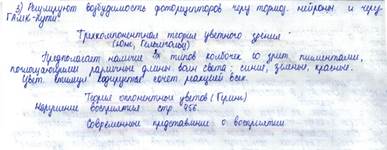 3) Регулируют возбудимость фоторецепторов через тормоз. нейроны и через ГАМК-
Трихкомпонентная теория цветного зрения -
(Юнг, Гельмгольц)
Предполагает наличие 3х типов колбочек со зрит. пигментами,
поглощающими различные длины волн света: синие, зелёные, красные.
Цвет. кодируется сочет. реакций всех.
Теория оппонентных цветов (Геринг)
Нарушение восприятия стр. 856.
Современные представления о восприятии